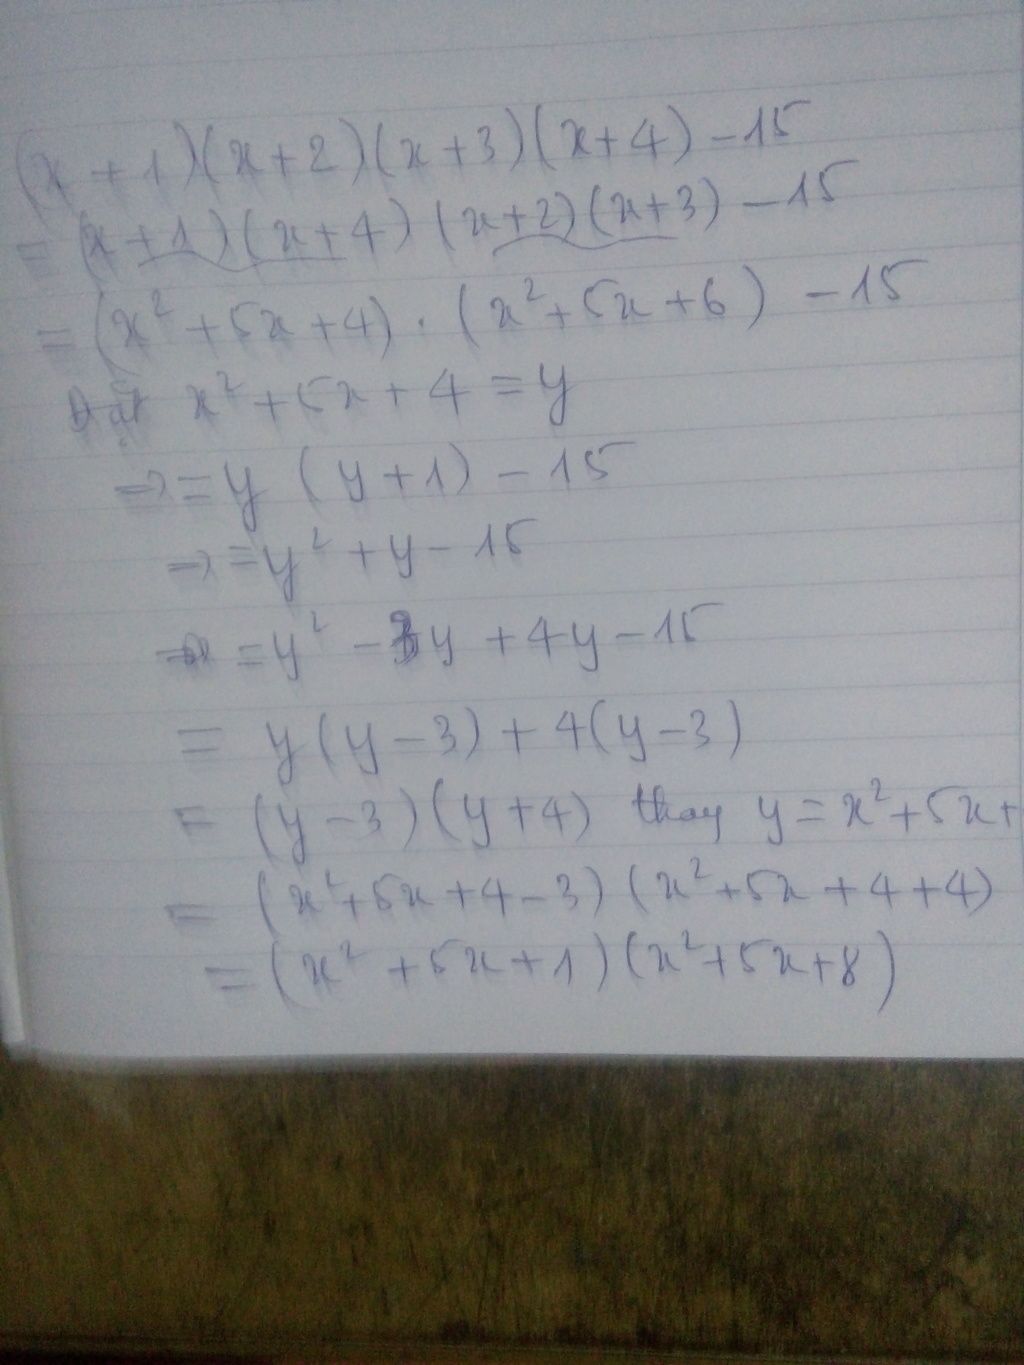 (x+1)(x+2)(x+3)(x+4)-15
= (x+1)(x+4)(x+2)(x+3)-15
= (x²+5x+4).(x²+5x+6)-15
Đặt x²+5x+4=y
⇒ = y(y+1)-15
⇒ = y²+y-15
= y²-3y+4y-15
= y(y-3)+4(y-3)
= (y-3)(y+4) thay y=x²+5x+
= (x²+5x+4-3)(x²+5x+4+4)
= (x²+5x+1)(x²+5x+8)